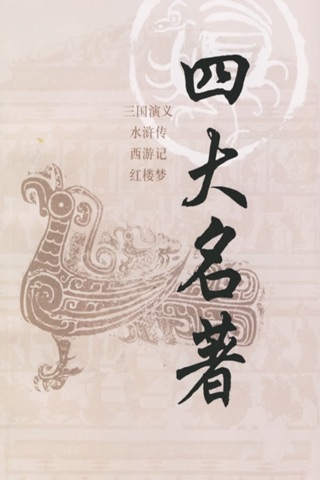 四大名著
三国演义
水浒传
西游记
红楼梦